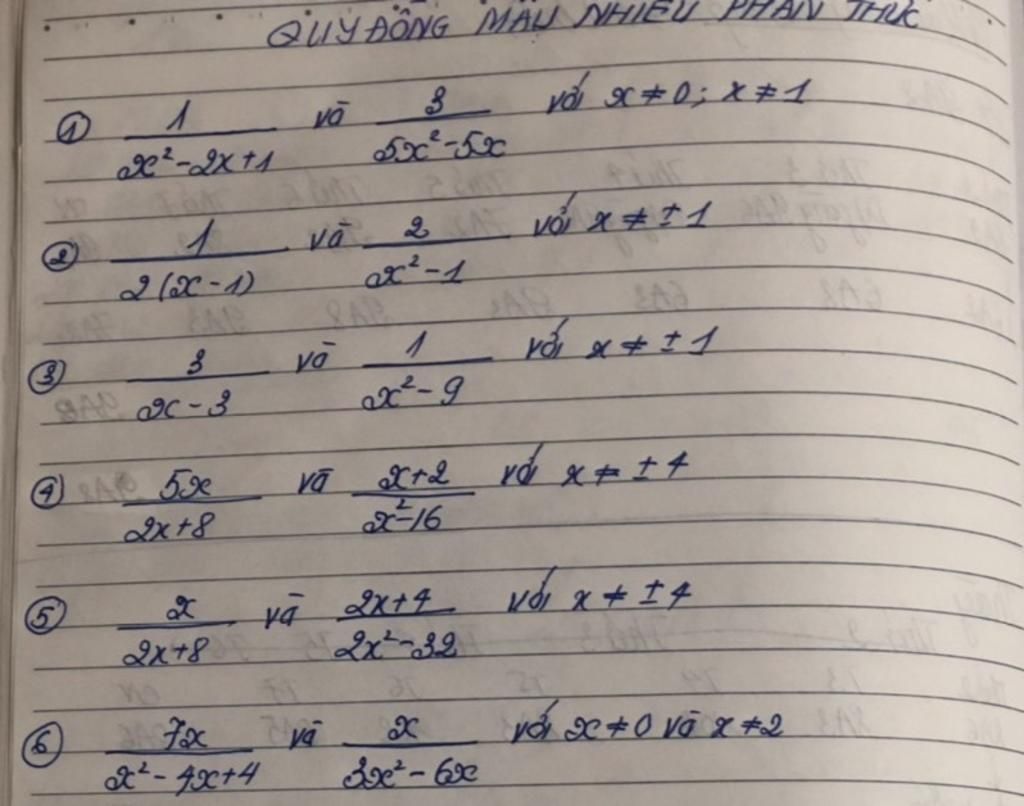 QUY ĐỒNG MẪU NHIỀU PHÂN THỨC
① 1/(x²-2x+1) và 3/(5x²-5x) với x ≠ 0; x ≠ 1
② 1/(2(x-1)) và 2/(x²-1) với x ≠ ±1
③ 3/(x-3) và 1/(x²-9) với x ≠ ±1
④ 5x/(2x+8) và (x+2)/(x²-16) với x ≠ ±4
⑤ x/(2x+8) và (2x+4)/(2x²-32) với x ≠ ±4
⑥ 7x/(x²-4x+4) và x/(3x²-6x) với x ≠ 0 và x ≠ 2